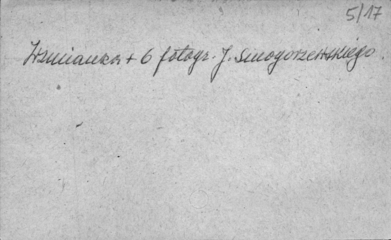 5/17
Wzmianka + 6 fotogr. J. Smogorzewskiego.